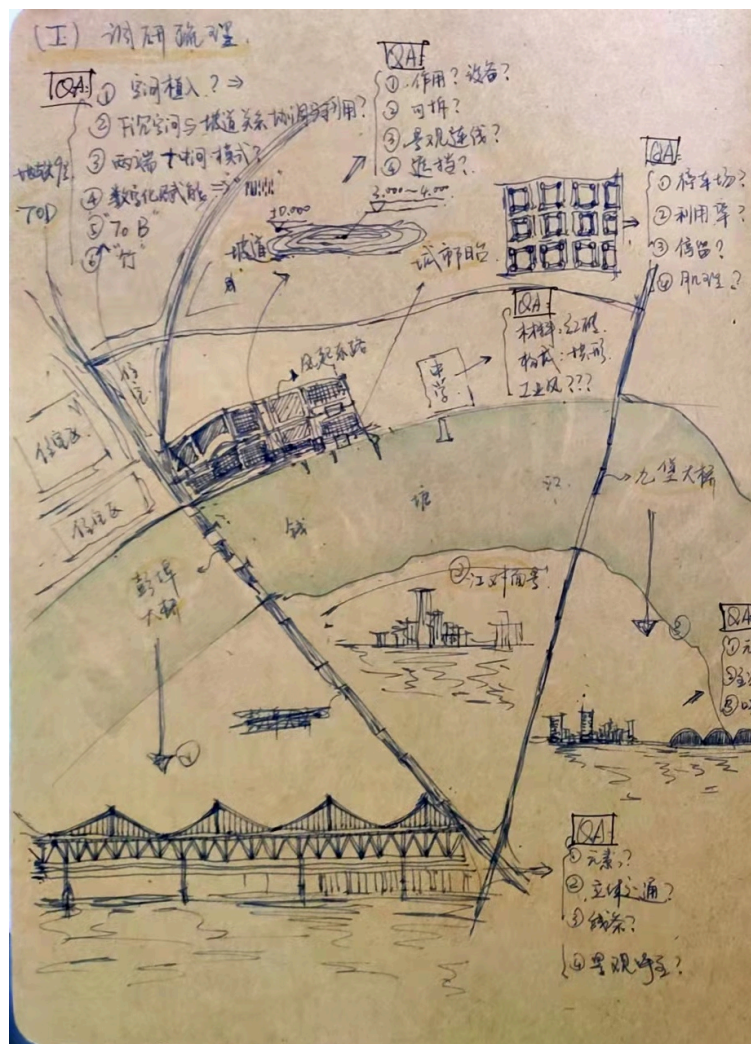 (I) 调研梳理.
QA:
① 空间植入? ⇒
② 下沉空间与坡道关系协调与利用?
③ 两端+中间模式?
④ 数字化赋能 ⇒ "!!!!!"
⑤ "To B"
⑥ "竹"
地铁9号
TOD
QA:
① 作用? 设备?
② 可拆?
③ 景观连线?
④ 遮挡?
±0.000
3.000~4.000
坡道
城市阳台
QA:
① 停车场?
② 利用率?
③ 停留?
④ 肌理?
QA:
材料:红砖
构成:拱形
工业风???
中学
住宅
住宅区
住宅区
钱
塘
江
九堡大桥
彭埠
大桥
② 江对面景
①
③
QA
①元
②
③
QA
① 元素?
② 立体交通?
③ 线条?
④ 景观